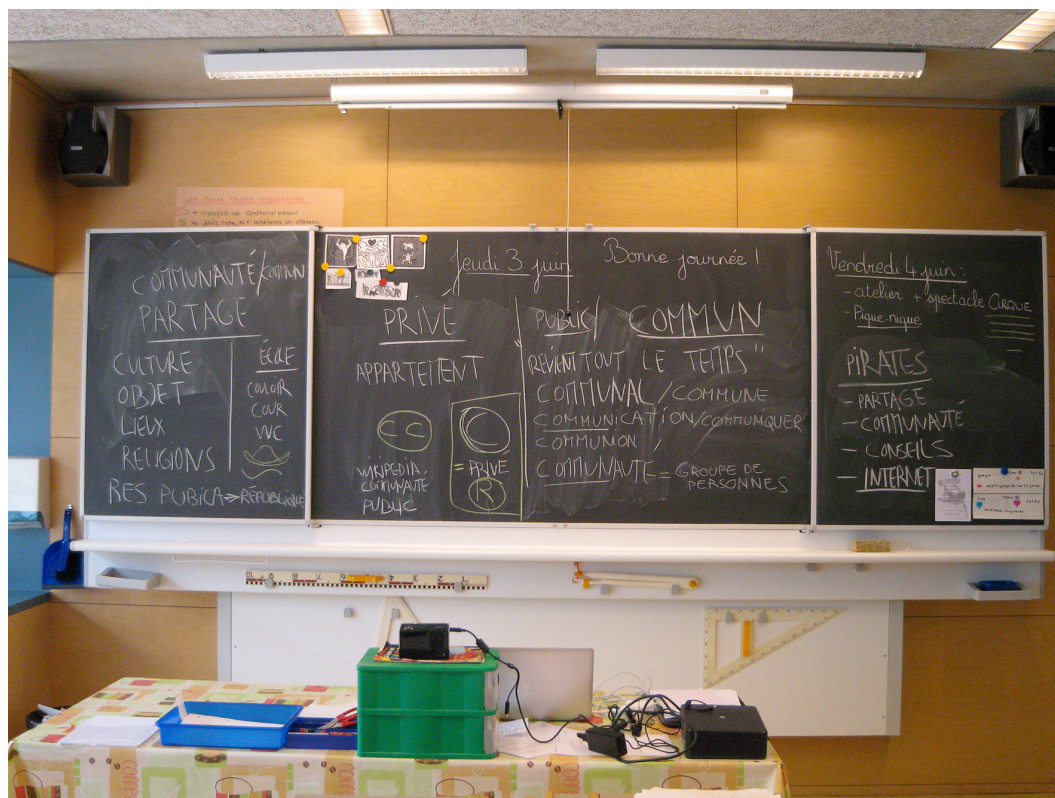 Les deux règles importantes
COMMUNAUTÉ/COMMUN
PARTAGE
CULTURE
OBJET
LIEUX
RELIGIONS
ÉCOLE
COULOIR
COUR
WC
RES PUBICA => RÉPUBLIQUE
Jeudi 3 juin
Bonne journée !
PRIVÉ
APPARTEMENT
CC
C
= PRIVE
R
WIKIPEDIA.
COMMUNAUTE
PUBLIC
PUBLIC/ COMMUN
"REVIENT TOUT LE TEMPS"
COMMUNAL / COMMUNE
COMMUNICATION/COMMUNIQUER
COMMUNION /
COMMUNAUTE = GROUPE DE
PERSONNES
Vendredi 4 juin :
- atelier + spectacle CIRQUE
- Pique-nique
PIRATES
- PARTAGE
- COMMUNAUTÉ
- CONSEILS
- INTERNET
10 9 8 7 6 4 3 2 1